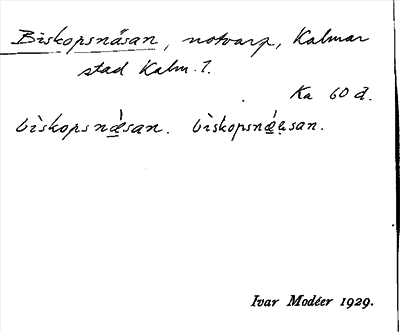 Biskopsnäsan, notvarp, Kalmar
stad Kalm. l.
Ka 60 d.
bìskopsnæ̀san. bìskopsnǽæsan.
Ivar Modéer 1929.